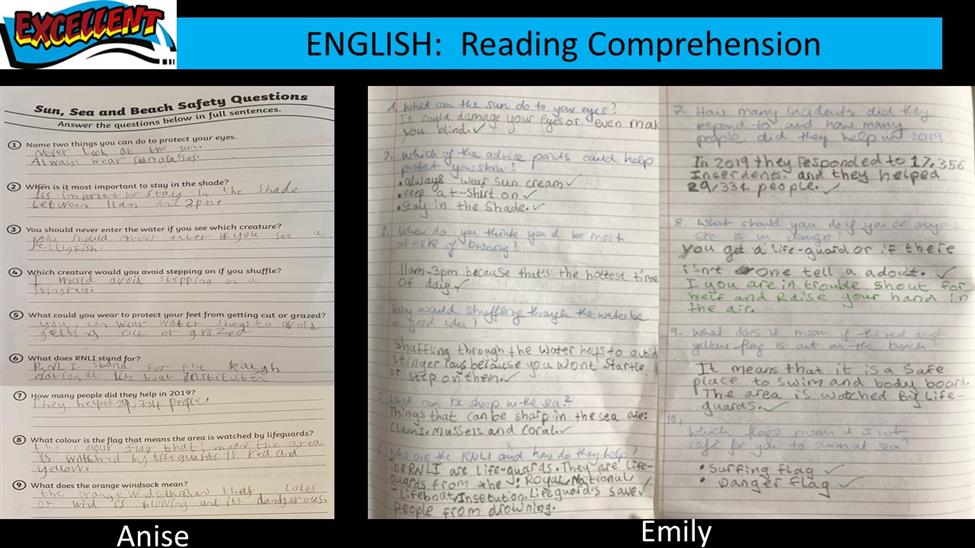 EXCELLENT
ENGLISH: Reading Comprehension
Sun, Sea and Beach Safety Questions
Answer the questions below in full sentences.
1 Name two things you can do to protect your eyes.
Never look at the sun.
Always wear sunglasses.
2 When is it most important to stay in the shade?
important to stay in the shade
between 11am 3pm.
3 You should never enter the water if you see which creature?
You should never enter if you see a
jellyfish.
4 Which creature would you avoid stepping on if you shuffle?
I would avoid stepping on a
stingray.
5 What could you wear to protect your feet from getting cut or grazed?
you can wear water to avoid
getting cut or grazed
6 What does RNLI stand for?
RNLI stand for the
boat institution
7 How many people did they help in 2019?
They helped 29,334 people.
8 What colour is the flag that means the area is watched by lifeguards?
colour the area
is watched by lifeguards is red and
yellow.
9 What does the orange windsock mean?
the orange
of wind is blowing and its dangerous.
1. What can the sun do to your eyes?
It could damage your eyes or even mak
you blind. ✓
2. Which of the advice points could help
protect your skin?
• always wear sun cream ✓
• keep a t-shirt on ✓
• stay in the shade. ✓
3. When do you think you'd be most
at risk of burning?
11am-3pm because that's the hottest time
of day. ✓
Why would shuffling through the water be
a good idea?
Shuffling through the water helps to avoid
stinger rays because you wont startle
or step on them. ✓
What can be sharp in the sea?
Things that can be sharp in the sea are:
Clams, mussels and coral. ✓
Who are the RNLI and how do they help?
The RNLI are life-guards. They are life-
guards from the Royal National
Lifeboat Institution. Lifeguards save ✓
people from drowning.
7. How many incidents did they
respond to and how many
people did they help in 2019.
In 2019 they responded to 17,356
inserdents and they helped
29,334 people. ✓
8. What should you do if you or anyone
else is in danger
you get a life-guard or if there
isnt one tell a adout. ✓
I you are in trouble shout for
help and Raise your hand in
the air.
9. What does it mean if the red and
yellow flag is out on the beach?
It means that it is a safe
place to swim and body board.
The area is watched by life-
guards. ✓
10.
Which flags mean it is not
safe for you to swim at sea?
• Surfing flag ✓
• Danger flag ✓
Anise
Emily